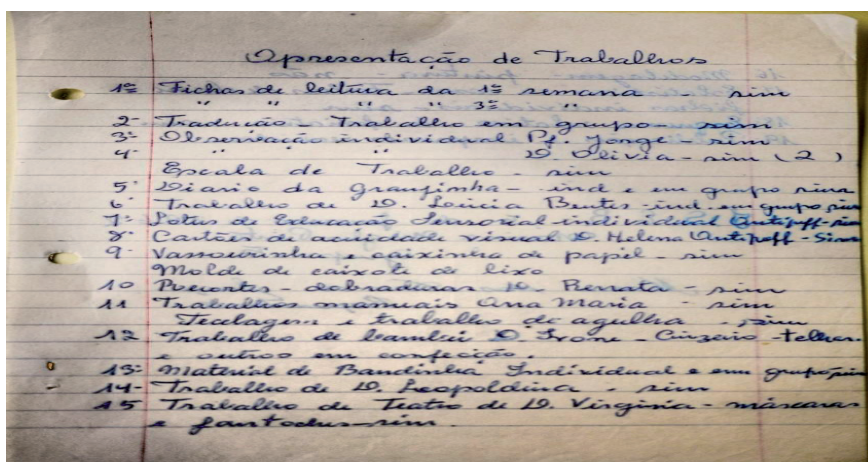 Apresentação de Trabalhos
1ª Fichas de leitura da 1ª semana - sim
" " " " 3ª "
2- Tradução - Trabalho em grupo - sim
3- Observação individual Pf. Jorge sim
4- " " D. Olivia - sim (2)
Escala de Trabalho - sim
5- Diario da Granjinha - ind e em grupo sim
6- Trabalho de D. Leticia Bentes - ind. em grupo sim
7- Potes de Educação Sensorial individual Antipoff - sim
8- Cartões de acuidade visual D. Helena Antipoff - Sim
9- Vassourinha e caixinha de papel - sim
Molde de caixote de lixo
10 - dobraduras D. Renata - sim
11 Trabalhos manuais Ana Maria - sim
Tecelagem e trabalho de agulha - sim
12 Trabalho de bambú D. Irone - Cinzeiro - telhas
e outros em confecição.
13- Material de Bandinha Individual e em grupo sim
14- Trabalho de D. Leopoldina - sim
15 Trabalho de Teatro de D. Virginia - máscaras
e fantoches - sim.